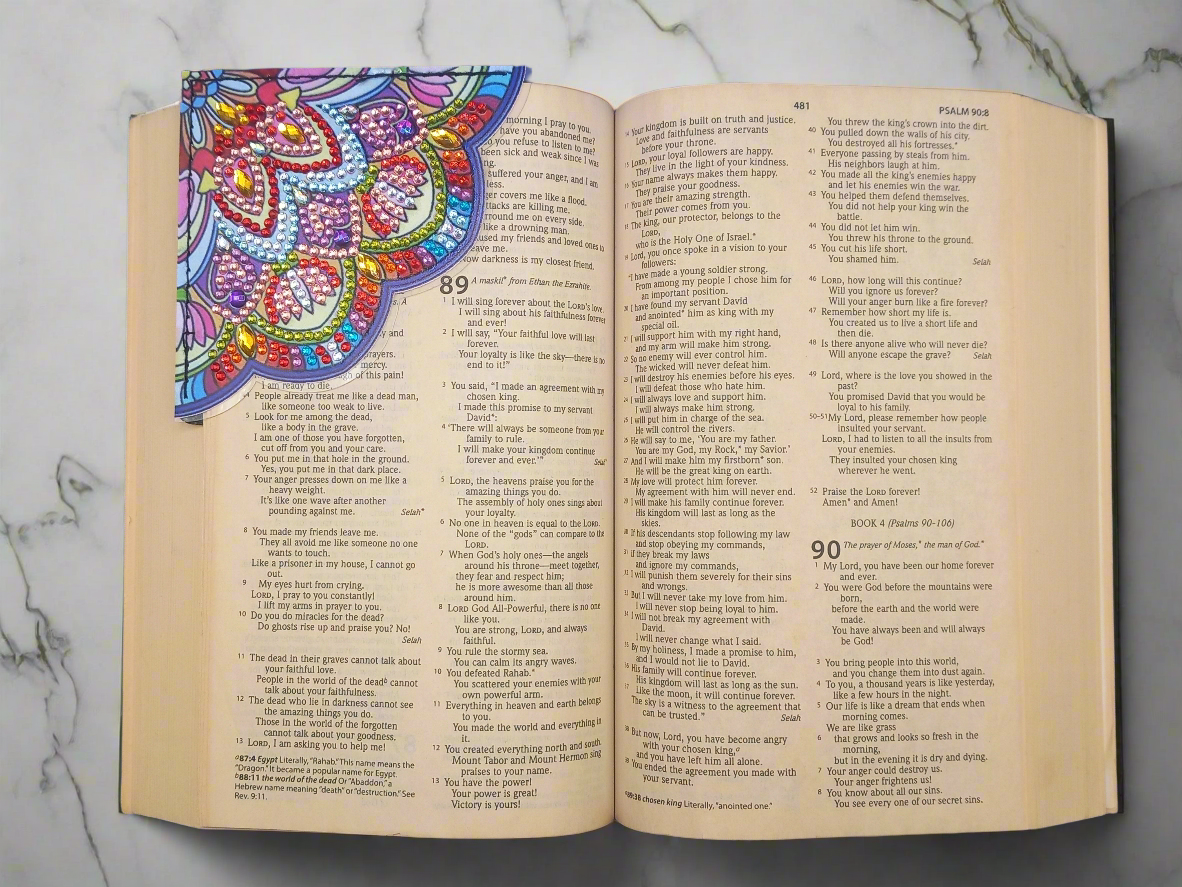 s. A
ky and
prayers.
mercy.
gh of this pain!
I am ready to die.
4 People already treat me like a dead man,
like someone too weak to live.
5 Look for me among the dead,
like a body in the grave.
I am one of those you have forgotten,
cut off from you and your care.
6 You put me in that hole in the ground.
Yes, you put me in that dark place.
7 Your anger presses down on me like a
heavy weight.
It's like one wave after another
pounding against me. Selah*
8 You made my friends leave me.
They all avoid me like someone no one
wants to touch.
Like a prisoner in my house, I cannot go
out.
9 My eyes hurt from crying.
LORD, I pray to you constantly!
I lift my arms in prayer to you.
10 Do you do miracles for the dead?
Do ghosts rise up and praise you? No!
Selah
11 The dead in their graves cannot talk about
your faithful love.
People in the world of the dead b cannot
talk about your faithfulness.
12 The dead who lie in darkness cannot see
the amazing things you do.
Those in the world of the forgotten
cannot talk about your goodness.
13 LORD, I am asking you to help me!
a 87:4 Egypt Literally, "Rahab." This name means the
"Dragon." It became a popular name for Egypt.
b 88:11 the world of the dead Or "Abaddon," a
Hebrew name meaning "death" or "destruction." See
Rev. 9:11.
morning I pray to you.
have you abandoned me?
you refuse to listen to me?
been sick and weak since I was
ng.
suffered your anger, and I am
less.
er covers me like a flood.
ttacks are killing me.
rround me on every side.
like a drowning man.
used my friends and loved ones to
eave me.
ow darkness is my closest friend.
89 A maskil* from Ethan the Ezrahite.
1 I will sing forever about the LORD's love.
I will sing about his faithfulness forever
and ever!
2 I will say, "Your faithful love will last
forever.
Your loyalty is like the sky—there is no
end to it!"
3 You said, "I made an agreement with my
chosen king.
I made this promise to my servant
David":
4 'There will always be someone from your
family to rule.
I will make your kingdom continue
forever and ever.'" Selah
5 LORD, the heavens praise you for the
amazing things you do.
The assembly of holy ones sings about
your loyalty.
6 No one in heaven is equal to the LORD.
None of the "gods" can compare to the
LORD.
7 When God's holy ones—the angels
around his throne—meet together,
they fear and respect him;
he is more awesome than all those
around him.
8 LORD God All-Powerful, there is no one
like you.
You are strong, LORD, and always
faithful.
9 You rule the stormy sea.
You can calm its angry waves.
10 You defeated Rahab.*
You scattered your enemies with your
own powerful arm.
11 Everything in heaven and earth belongs
to you.
You made the world and everything in
it.
12 You created everything north and south.
Mount Tabor and Mount Hermon sing
praises to your name.
13 You have the power!
Your power is great!
Victory is yours!
481
PSALM 90:8
14 Your kingdom is built on truth and justice.
Love and faithfulness are servants
before your throne.
15 LORD, your loyal followers are happy.
They live in the light of your kindness.
16 Your name always makes them happy.
They praise your goodness.
17 You are their amazing strength.
Their power comes from you.
18 The king, our protector, belongs to the
LORD,
who is the Holy One of Israel.*
19 Lord, you once spoke in a vision to your
followers:
"I have made a young soldier strong.
From among my people I chose him for
an important position.
20 I have found my servant David
and anointed* him as king with my
special oil.
21 I will support him with my right hand,
and my arm will make him strong.
22 So no enemy will ever control him.
The wicked will never defeat him.
23 I will destroy his enemies before his eyes.
I will defeat those who hate him.
24 I will always love and support him.
I will always make him strong.
25 I will put him in charge of the sea.
He will control the rivers.
26 He will say to me, 'You are my father.
You are my God, my Rock,* my Savior.'
27 And I will make him my firstborn* son.
He will be the great king on earth.
28 My love will protect him forever.
My agreement with him will never end.
29 I will make his family continue forever.
His kingdom will last as long as the
skies.
30 If his descendants stop following my law
and stop obeying my commands,
31 if they break my laws
and ignore my commands,
32 I will punish them severely for their sins
and wrongs.
33 But I will never take my love from him.
I will never stop being loyal to him.
34 I will not break my agreement with
David.
I will never change what I said.
35 By my holiness, I made a promise to him,
and I would not lie to David.
36 His family will continue forever.
His kingdom will last as long as the sun.
37 Like the moon, it will continue forever.
The sky is a witness to the agreement that
can be trusted." Selah
38 But now, Lord, you have become angry
with your chosen king, a
and you have left him all alone.
39 You ended the agreement you made with
your servant.
a 89:38 chosen king Literally, "anointed one."
You threw the king's crown into the dirt.
40 You pulled down the walls of his city.
You destroyed all his fortresses.*
41 Everyone passing by steals from him.
His neighbors laugh at him.
42 You made all the king's enemies happy
and let his enemies win the war.
43 You helped them defend themselves.
You did not help your king win the
battle.
44 You did not let him win.
You threw his throne to the ground.
45 You cut his life short.
You shamed him. Selah
46 LORD, how long will this continue?
Will you ignore us forever?
Will your anger burn like a fire forever?
47 Remember how short my life is.
You created us to live a short life and
then die.
48 Is there anyone alive who will never die?
Will anyone escape the grave? Selah
49 Lord, where is the love you showed in the
past?
You promised David that you would be
loyal to his family.
50-51 My Lord, please remember how people
insulted your servant.
LORD, I had to listen to all the insults from
your enemies.
They insulted your chosen king
wherever he went.
52 Praise the LORD forever!
Amen* and Amen!
BOOK 4 (Psalms 90-106)
90 The prayer of Moses,* the man of God.*
1 My Lord, you have been our home forever
and ever.
2 You were God before the mountains were
born,
before the earth and the world were
made.
You have always been and will always
be God!
3 You bring people into this world,
and you change them into dust again.
4 To you, a thousand years is like yesterday,
like a few hours in the night.
5 Our life is like a dream that ends when
morning comes.
We are like grass
6 that grows and looks so fresh in the
morning,
but in the evening it is dry and dying.
7 Your anger could destroy us.
Your anger frightens us!
8 You know about all our sins.
You see every one of our secret sins.